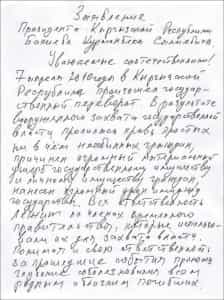 Заявление
Президента Кыргызской Республики
Бакиева Курманбека Салиевича
Уважаемые соотечественники!
7 апреля 2010 года в Кыргызской
Республике произошел государ-
ственный переворот. В результате
вооруженного захвата государственной
власти пролилась кровь простых
ни в чем неповинных граждан,
причинен огромный материальный
ущерб государственному имуществу
и личному имуществу граждан,
нанесен огромный урон имиджу
государства. Вся ответственность
лежит на членах временного
правительства, которые использо-
вали их для захвата власти.
Понимая свою ответственность
за происшедшие события приношу
глубокие соболезнования всем
родным и близким погибших.